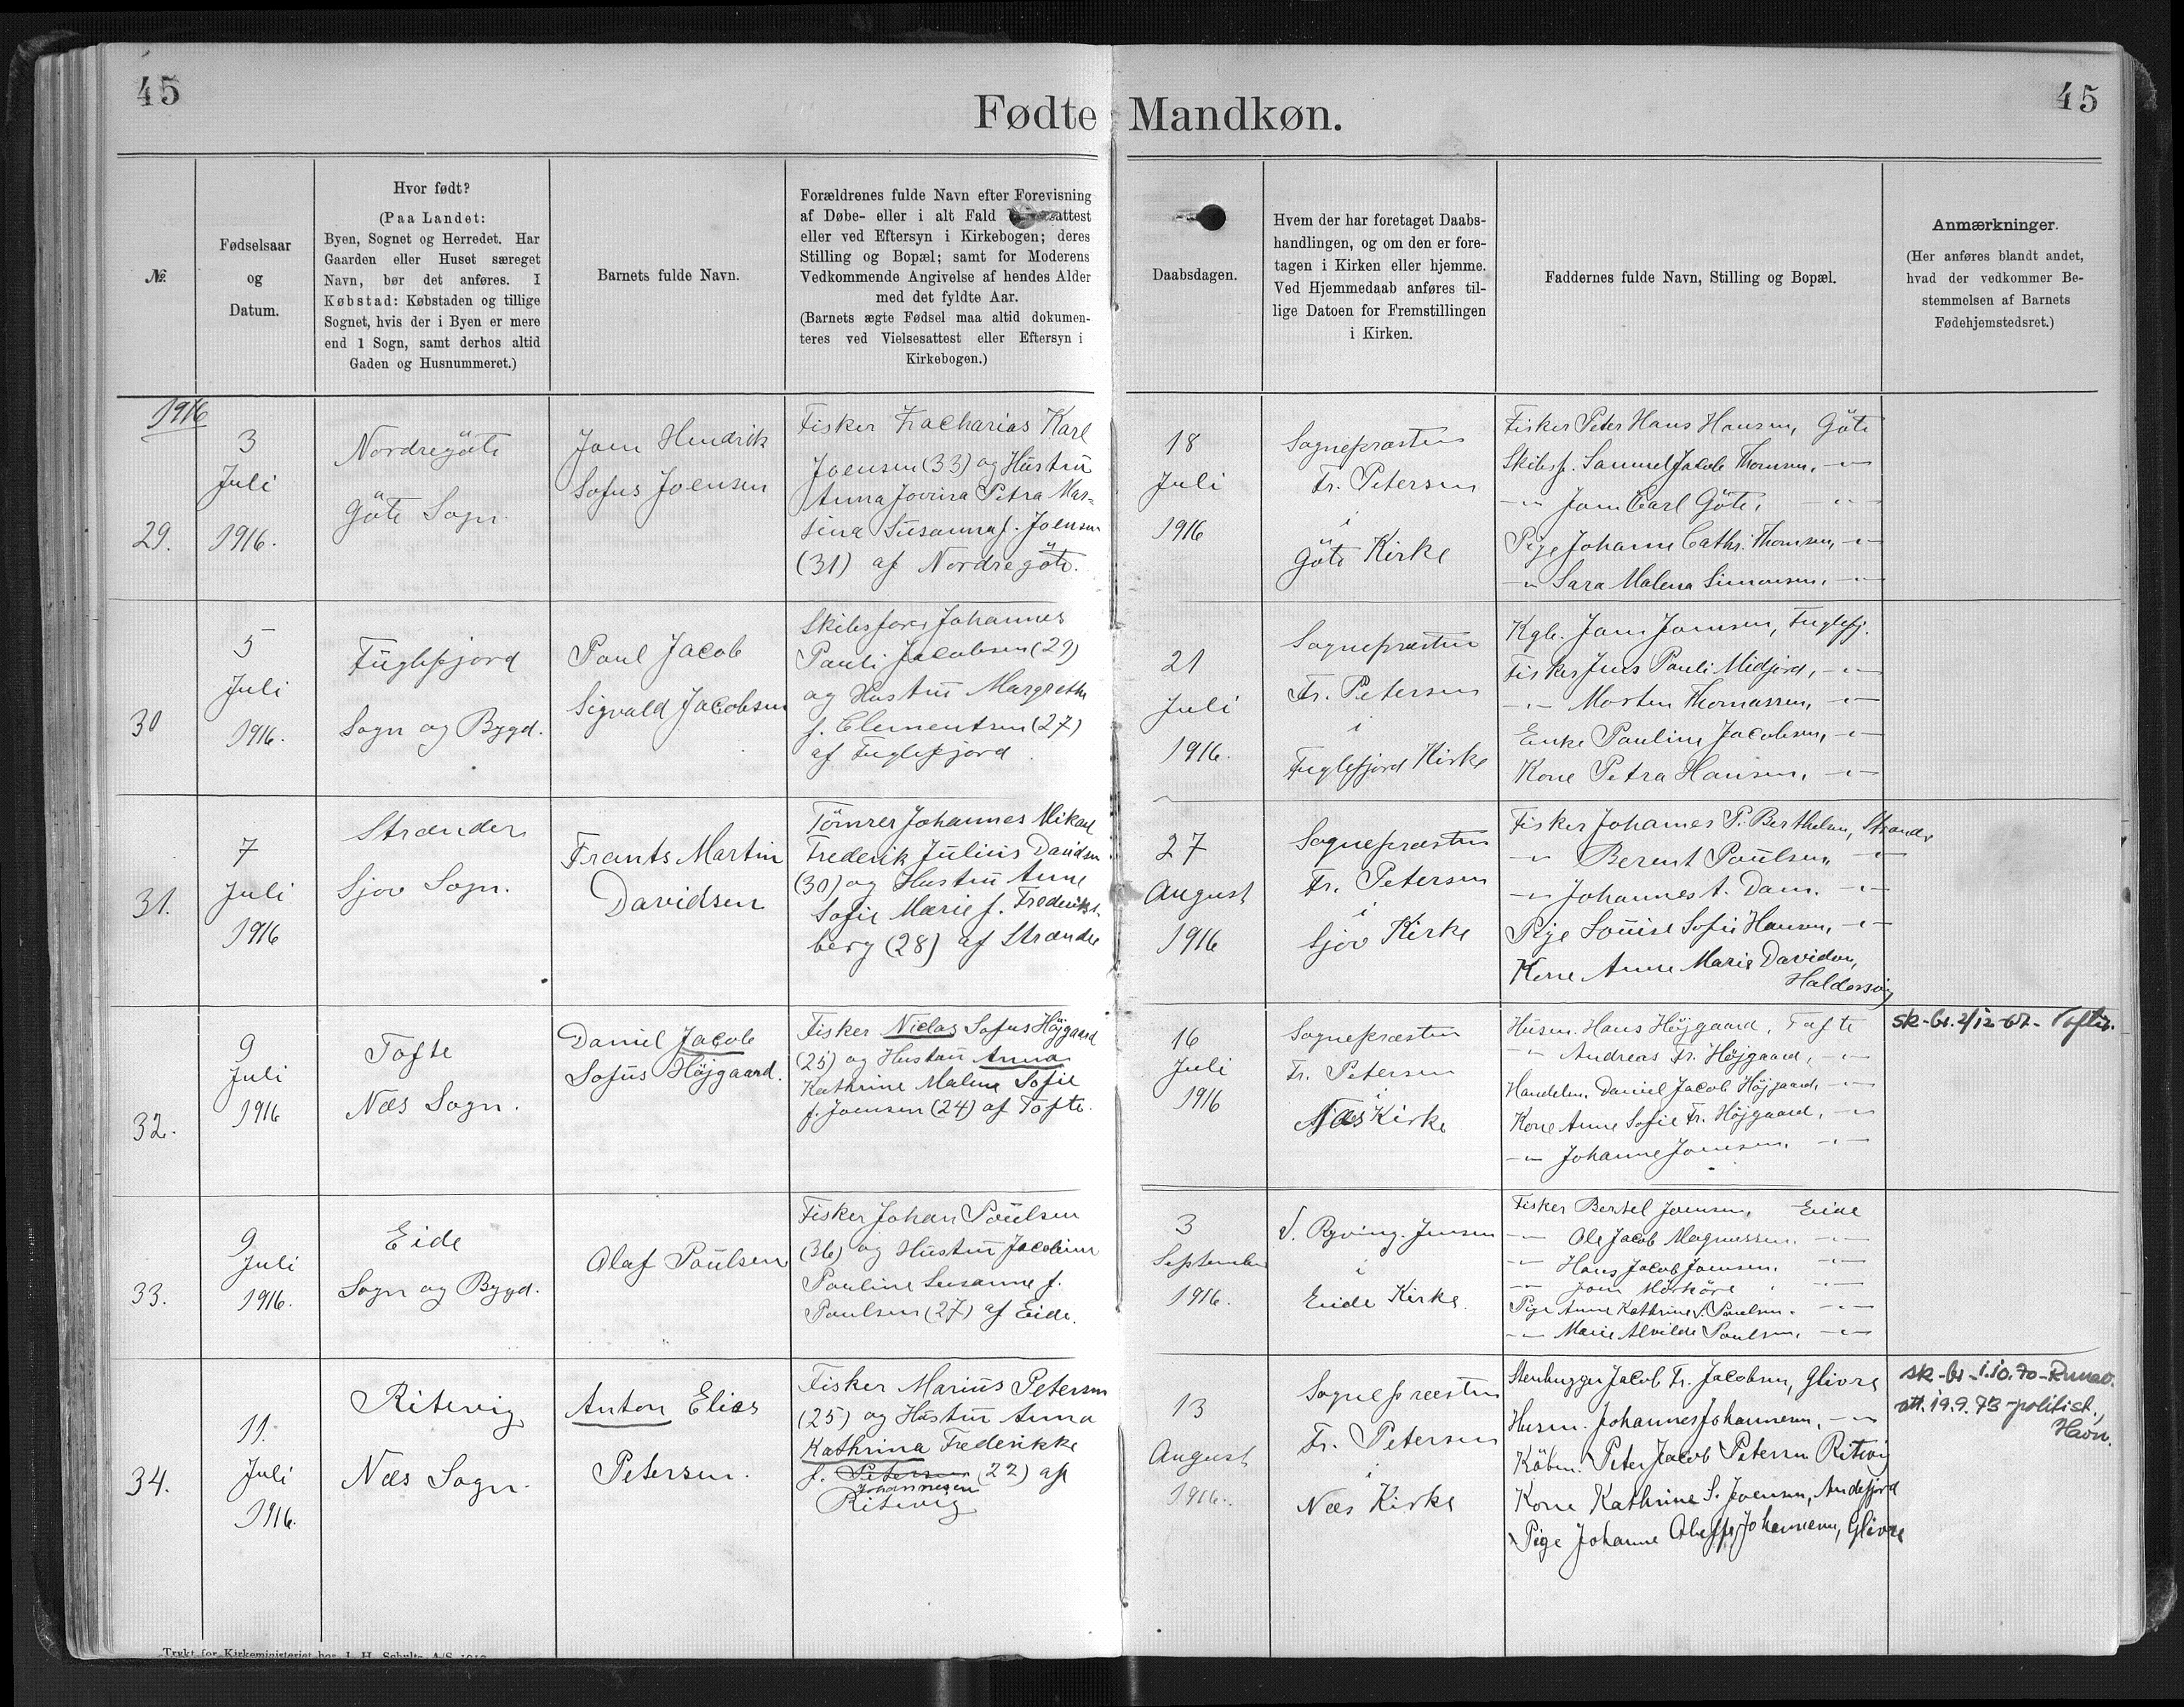 45
45
Fødte Mandkøn.
№
Fødselsaar
og
Datum.
Hvor født?
(Paa Landet:
Byen, Sognet og Herredet. Har
Gaarden eller Huset særeget
Navn, bør det anføres. I
Købstad: Købstaden og tillige
Sognet, hvis der i Byen er mere
end 1 Sogn, samt derhos altid
Gaden og Husnummeret.)
Barnets fulde Navn.
Forældrenes fulde Navn efter Forevisning
af Døbe- eller i alt Fald
eller ved Eftersyn i Kirkebogen; deres
Stilling og Bopæl; samt for Moderens
Vedkommende Angivelse af hendes Alder
med det fyldte Aar.
(Barnets ægte Fødsel maa altid dokumen-
teres ved Vielsesattest eller Eftersyn i
Kirkebogen.)
Daabsdagen.
Hvem der har foretaget Daabs-
handlingen, og om den er fore-
tagen i Kirken eller hjemme.
Ved Hjemmedaab anføres til-
lige Datoen for Fremstillingen
i Kirken.
Faddernes fulde Navn, Stilling og Bopæl.
Anmærkninger.
(Her anføres blandt andet,
hvad der vedkommer Be-
stemmelsen af Barnets
Fødehjemstedsret.)
1916
29.
3
Juli
1916.
Nordregöte
Göte Sogn.
Joen Hendrik
Sofus Joensen
Fisker Zacharias Karl
Joensen (33) og Hustru
Anna Jovina Petra Mar-
sina Susanna f. Joensen
(31) af Nordregöte.
18
Juli
1916
Sognepræsten
Fr. Petersen
i
Göte Kirke
Fisker Peter Hans Hansen, Göte
Skibsf. Samuel Jacob Thomsen, -"-
-"- Joen Carl Göte, -"-
Pige Johanne Cathr. Thomsen, -"-
-"- Sara Malena Simonsen, -"-
30
5
Juli
1916.
Fuglefjord
Sogn og Bygd.
Poul Jacob
Sigvald Jacobsen
Skibsfører Johannes
Pauli Jacobsen (29)
og Hustru Margrethe
f. Clementsen (27)
af Fuglefjord
21
Juli
1916.
Sognepræsten
Fr. Petersen
i
Fuglefjord Kirke
Kgb. Joen Joensen, Fuglefj.
Fisker Jens Pauli Midjord, -"-
-"- Morten Thomassen, -"-
Enke Pauline Jacobsen, -"-
Kone Petra Hansen, -"-
31.
7
Juli
1916
Strænder
Sjov Sogn.
Frants Martin
Davidsen
Tömrer Johannes Mikael
Frederik Julius Davidsen
(30) og Hustru Anne
Sofie Marie f. Frederiks-
berg (28) af Strænder
27
August
1916
Sognepræsten
Fr. Petersen
i
Sjov Kirke
Fisker Johannes P. Berthelsen, Strændr
-"- Berent Poulsen, -"-
-"- Johannes A. Dam. -"-
Pige Louise Sofie Hansen, -"-
Kone Anne Marie Davidsen,
Haldorsvig
32.
9
Juli
1916
Tofte
Næs Sogn.
Daniel Jacob
Sofus Höjgaard.
Fisker Niclas Sofus Höjgaard
(25) og Hustru Anna
Kathrine Malene Sofie
f. Joensen (24) af Tofte.
16
Juli
1916
Sognepræsten
Fr. Petersen
i
Næs Kirke
Husm. Hans Höjgaard, Tofte
-"- Andreas Fr. Höjgaard, -"-
Handelsm. Daniel Jacob Höjgaard, -"-
Kone Anne Sofie Fr. Höjgaard, -"-
-"- Johanne Joensen. -"-
sk-br. 2/12-67- Toftir.
33.
9
Juli
1916.
Eide
Sogn og Bygd.
Olaf Poulsen
Fisker Johan Poulsen
(36) og Hustru Jacobine
Pauline Susanne f.
Poulsen (27) af Eide.
3
September
1916.
Ryving-Jensen
i
Eide Kirke.
Fisker Bertel Joensen, Eide
-"- Ole Jacob Magnussen. -"-
-"- Hans Jacob Joensen. -"-
-"- Joen Mörköre -"-
Pige Anne Kathrine Poulsen. -"-
-"- Marie Alvilde Poulsen, -"-
34.
11.
Juli
1916.
Ritevig
Næs Sogn.
Anton Elias
Petersen.
Fisker Marius Petersen
(25) og Hustru Anna
Kathrina Frederikke
f. Petersen (22) af
Johannesen
Ritevig
13
August
1916.
Sognepræsten
Fr. Petersen
i
Næs Kirke
Stenhugger Jacob Fr. Jacobsen, Glivre
Husm. Johannes Johannesen, -"-
Köbm. Peter Jacob Petersen Ritevig
Kone Kathrine S. Joensen, Andefjord
Pige Johanne Johannesen, Glivre
sk-br-1.10.70-Runav.
att. 19.9.73-politist.,
Havn.